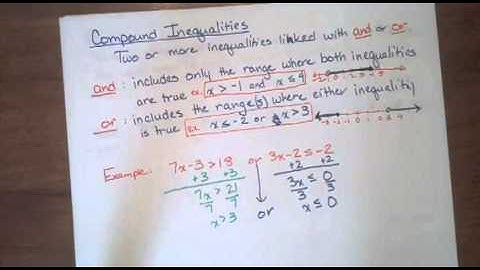 Compound Inequalities
Two or more inequalities linked with and or or.
and : includes only the range where both inequalities
are true ex. x > -1 and x ≤ 4
or : includes the range(s) where either inequality
is true ex. x ≤ -2 or x > 3
Example: 7x-3 > 18 or 3x-2 ≤ -2
+3 +3 +2 +2
7x > 21 3x ≤ 0
7 7 3 3
x > 3 or x ≤ 0